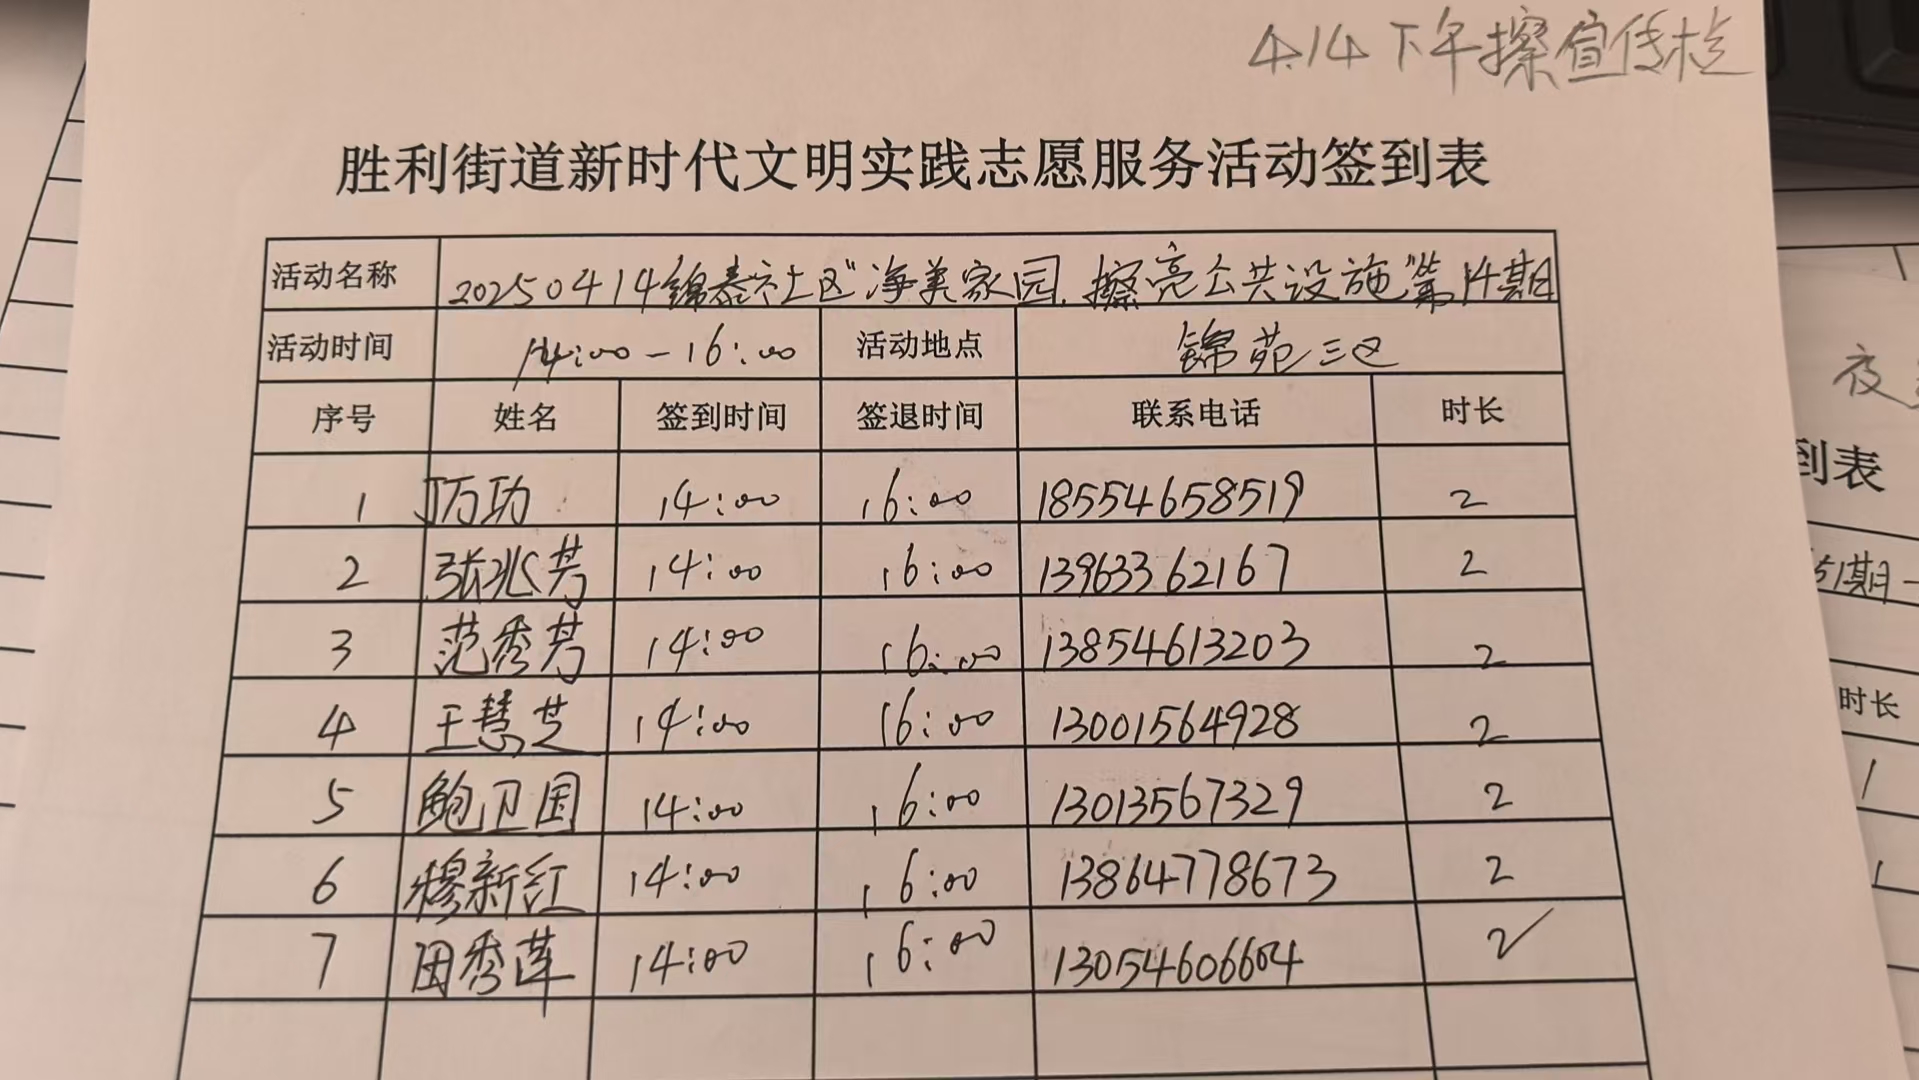 4.14下午擦宣传栏
胜利街道新时代文明实践志愿服务活动签到表
活动名称 20250414锦泰社区"净美家园,擦亮公共设施"第14期
活动时间 14:00-16:00 活动地点 锦苑三区
序号 姓名 签到时间 签退时间 联系电话 时长
1 万功 14:00 16:00 18554658519 2
2 张兆芳 14:00 16:00 13963362167 2
3 范秀芳 14:00 16:00 13854613203 2
4 王慧芝 14:00 16:00 13001564928 2
5 鲍卫国 14:00 16:00 13013567329 2
6 穆新红 14:00 16:00 13864778673 2
7 田秀莲 14:00 16:00 13054606604 2✓
夜
到表
51期
时长
1
1